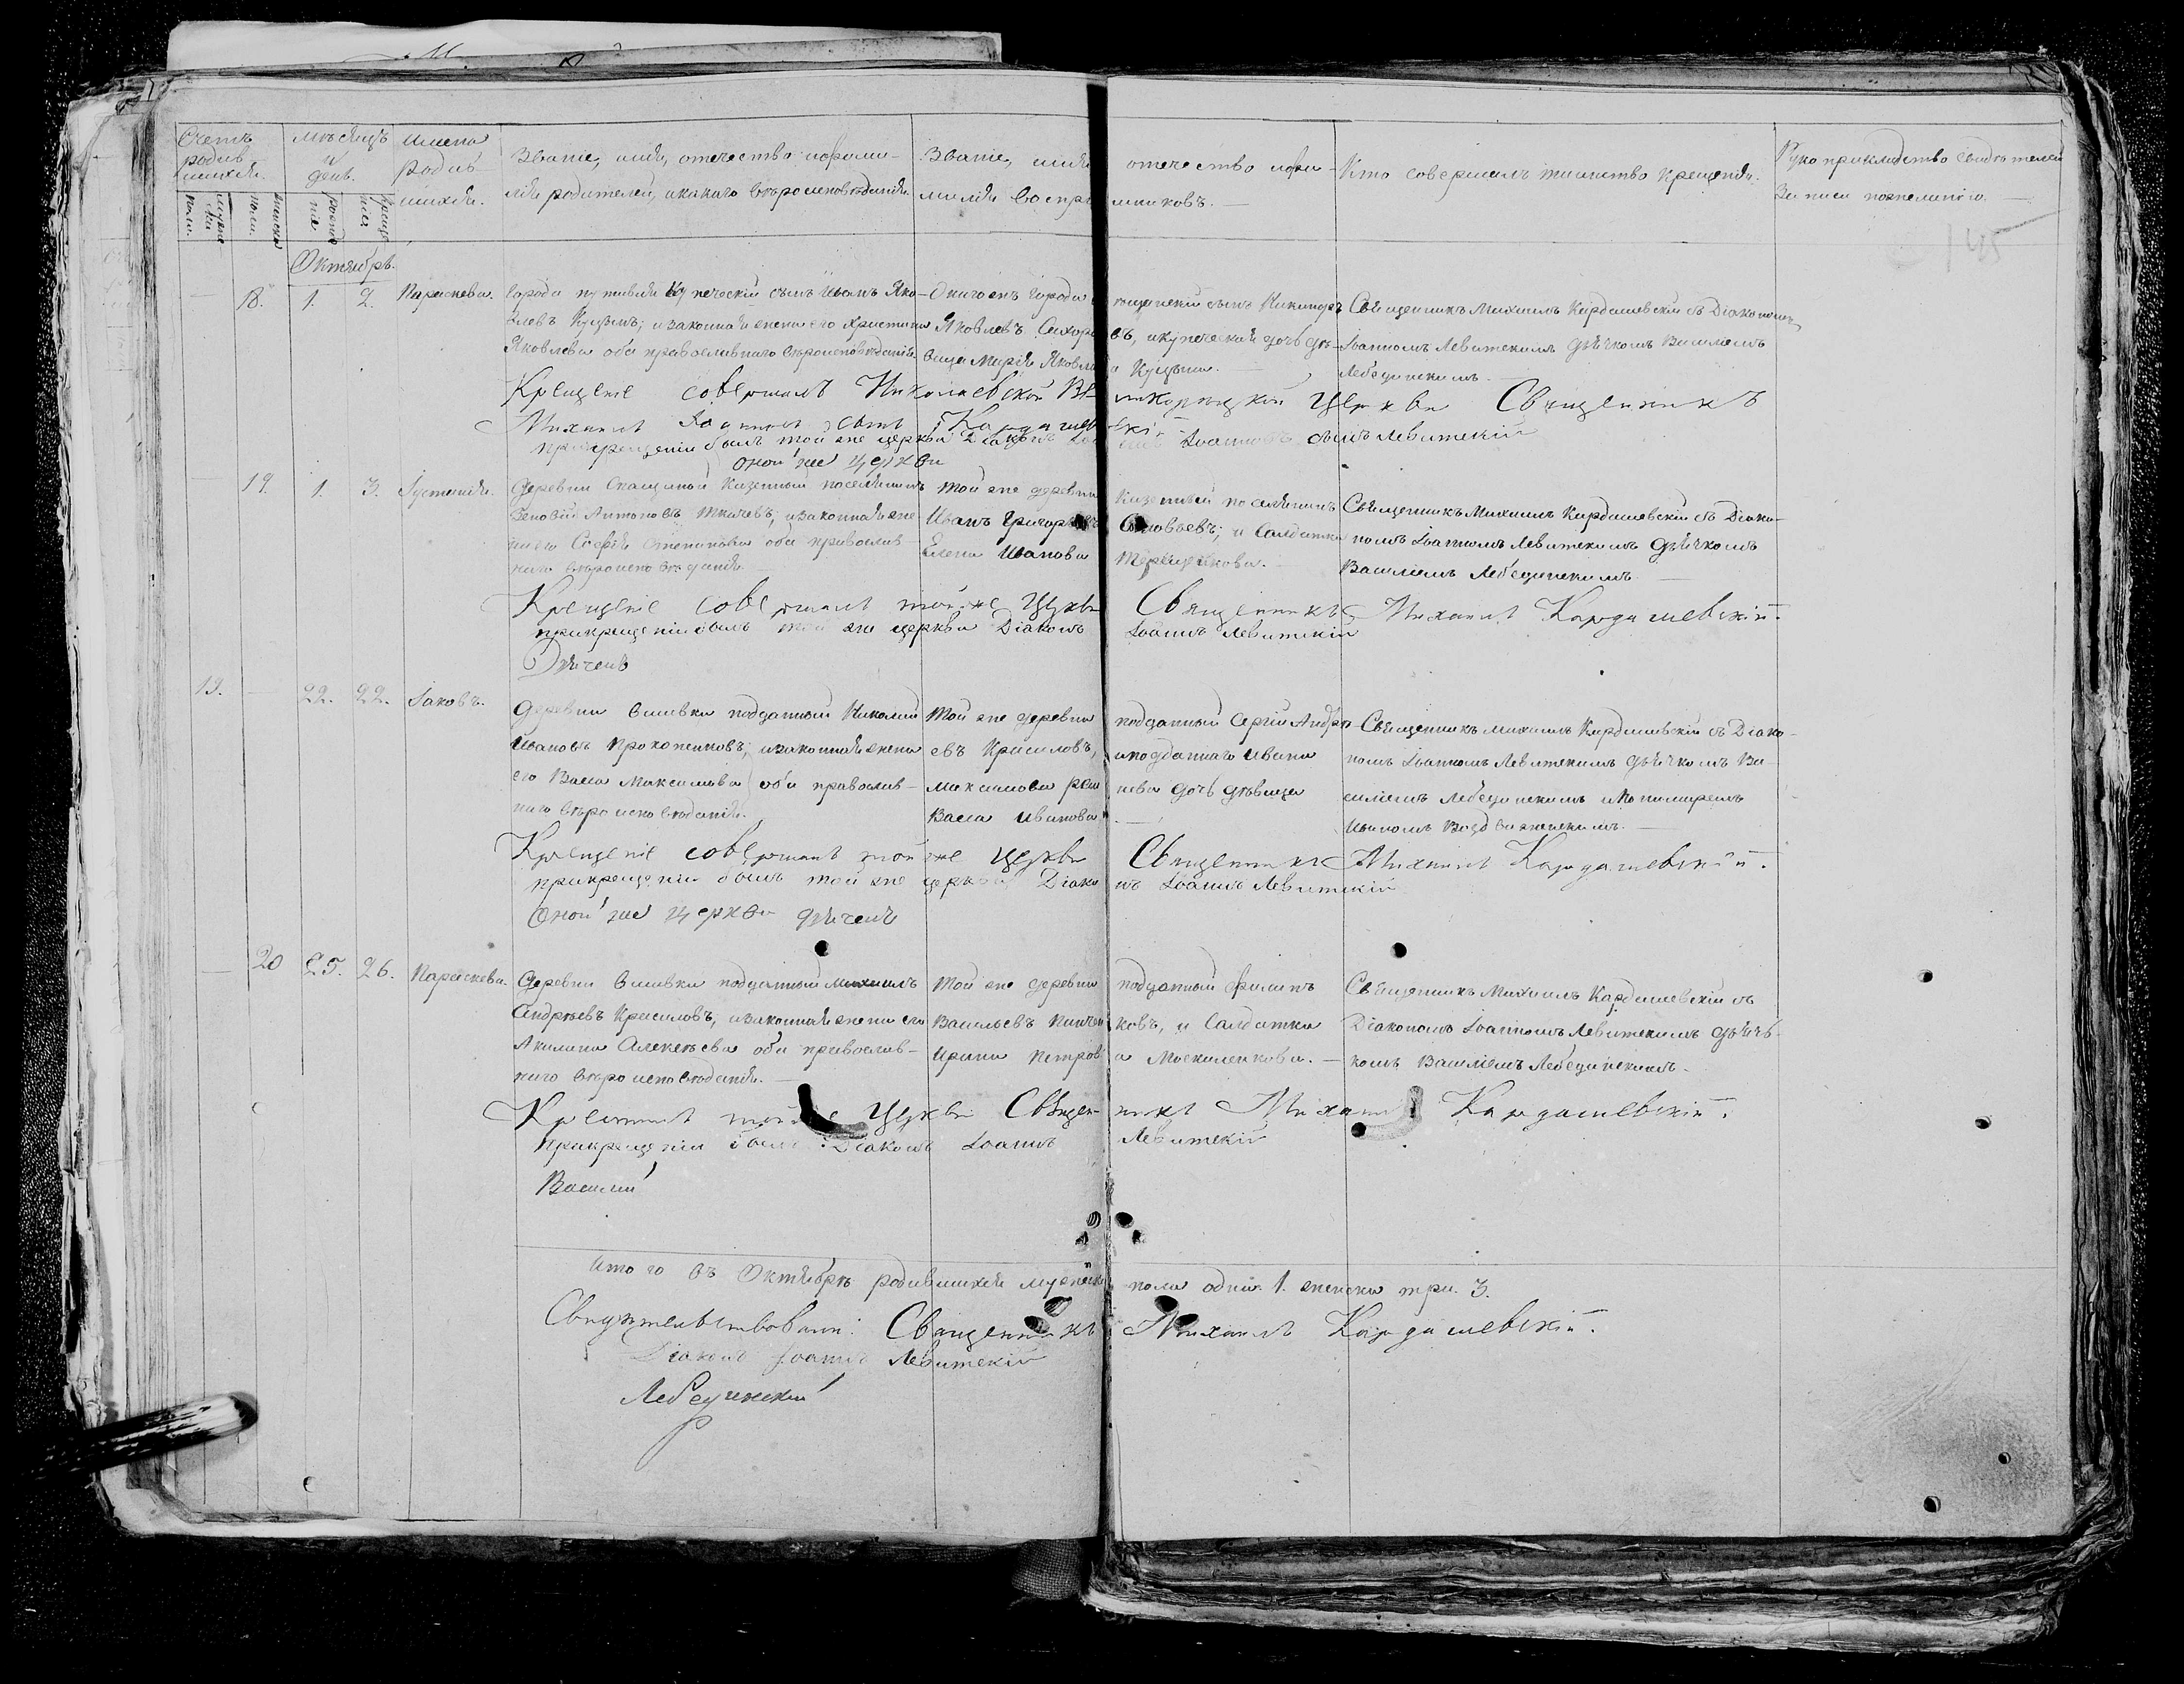 Счетъ родив шихся.
мѣсяцъ и день.
имена родив шихся.
Званіе, имя, отечество ифами-
лія родителей, икакаго вѣроисповѣданія.
Званіе, имя отечество ифа-
милія воспрі имниковъ.
Кто совершалъ таинство крещенія.
Рукоприкладство свидѣтелей
записи пожеланію.
мужес ка полу.
женска полу.
рожде нія
креще нія
145
Октябрь.
18. 1. 2. Параскева.
Города путивля купеческій сынъ Иванъ Яко-
влевъ Куцынъ; изаконная жена его Христина
Яковлева оба православнаго вѣроисповѣданія.
Онагожъ города мещанскій сынъ Никаноръ
Яковлевъ въ, икупеческая дочь дѣ-
вица Марія Яковлева Куцына.
Священникъ Михаилъ Кардашевскій съ Діакономъ
Іоанномъ Левитскимъ дьячкомъ Василіемъ
Лебединскимъ.
Крещеніе совершалъ Николаевской Ве ликорецкой Церкви Священникъ
Михаилъ Іоанновъ сынъ Кардашевскій
прикрещеніи былъ той же церкви Діаконъ Іоанновъ сынъ Левитскій
оной же церкви
19. 1. 3. Іустинія.
Деревни Спащиной Казенный поселянинъ
Зеновій Антоновъ Ткачевъ, изаконная же
на его Софія Степанова оба православ-
наго вѣроисповѣданія.
Той же деревни Казенный поселянинъ
Иванъ Григорьевъ Соловьевъ; и Салдатка
Елена Иванова Терещенкова.
Священникъ Михаилъ Кардашевскій съ Діако-
номъ Іоанномъ Левитскимъ дьячкомъ
Василіемъ Лебединскимъ.
Крещеніе совершалъ той же Церкви Священникъ Михаилъ Кардашевскій.
прикрещеніи былъ той же церкви Діаконъ Іоаннъ Левитскій
Дьячекъ
19. 22. 22. Іаковъ.
Деревни Вшивки подданный Николай
Ивановъ Прокопенковъ; изаконная жена
его Васса Максимова оба православ-
наго вѣроисповѣданія.
Той же деревни подданный Сергій Андре-
евъ Красиловъ, иподданнаго Ивана
Максимова дочь дѣвица
Васса Иванова
Священникъ михаилъ Кардашевскій съ Діако-
номъ Іоанномъ Левитскимъ дьячкомъ Ва-
силіемъ Лебединскимъ ипономаремъ
Иваномъ Воздвиженскимъ.
Крещеніе совершалъ той же Церкви Священникъ Михаилъ Кардашевскій.
прикрещеніи былъ той же церкви Діаконъ Іоаннъ Левитскій
Оной же церкви дьячекъ
20 25. 26. Параскева.
Деревни Вшивки подданный михаилъ
Андреевъ Красиловъ, изаконная жена его
Акилина Алексѣева оба православ-
наго вѣроисповѣданія.
Той же деревни подданный Филипъ
Васильевъ ковъ, и Салдатка
Ирина Петрова Москаленкова.
Священникъ Михаилъ Кардашевскій съ
Діакономъ Іоанномъ Левитскимъ дьяч-
комъ Василіемъ Лебединскимъ.
Крестилъ той же Церкви Священникъ Михаилъ Кардашевскій.
прикрещеніи былъ: Діаконъ Іоаннъ Левитскій
Василій
Итого въ Октябрѣ родившихся мужска пола одинъ 1. женска три 3.
Свидѣтельствовали: Священникъ Михаилъ Кардашевскій.
Діаконъ Іоаннъ Левитскій
Лебединскій